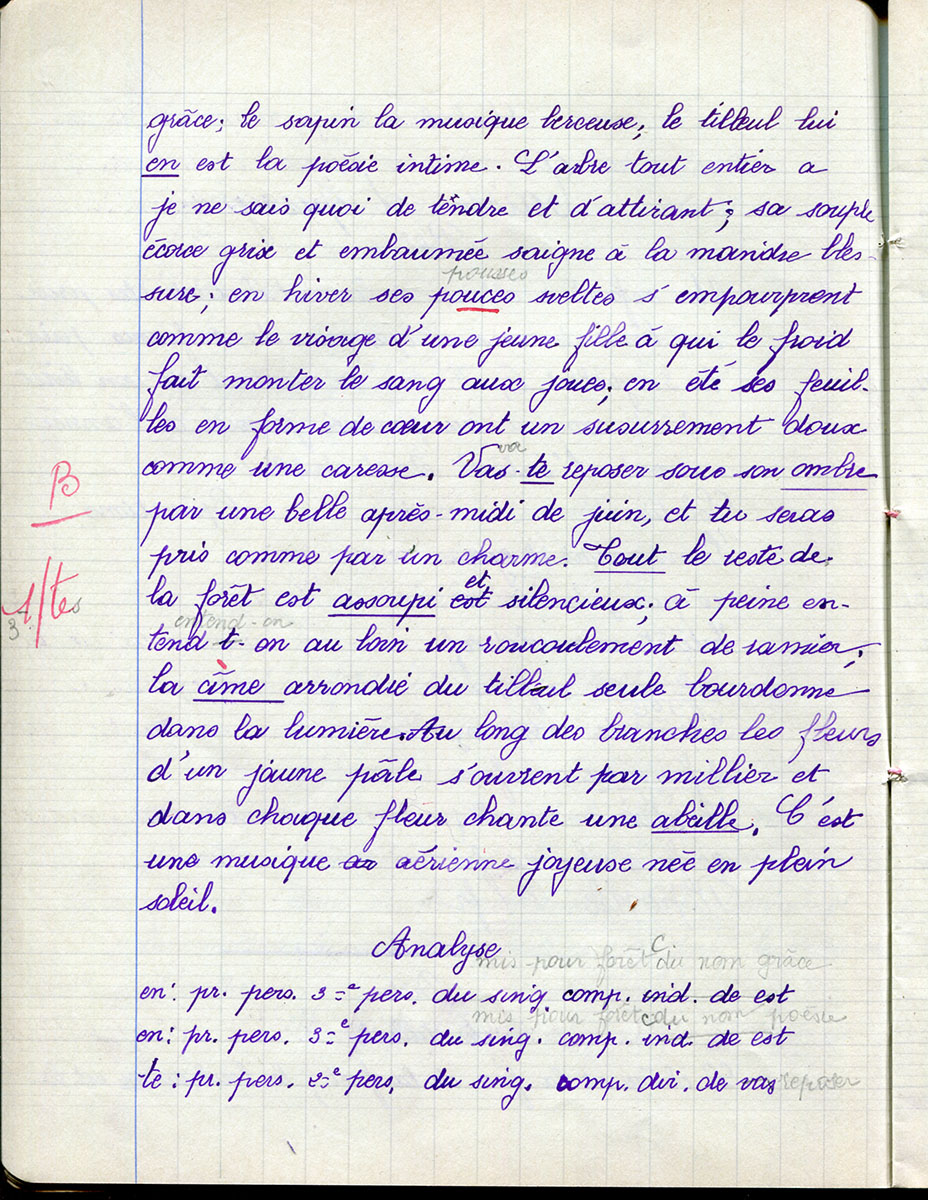 grâce; le sapin la musique berceuse; le tilleul lui
en est la poésie intime. L'arbre tout entier a
je ne sais quoi de tendre et d'attirant; sa souple
écorce grise et embaumée saigne à la maindre bles-
pousses
sure; en hiver ses pouces sveltes s'empourprent
comme le visage d'une jeune fille à qui le froid
fait monter le sang aux joues; en été ses feuil-
les en forme de cœur ont un susurrement doux
va
comme une caresse. Vas-te reposer sous son ombre
par une belle après-midi de juin, et tu seras
B
pris comme par un charme. Tout le reste de
et
la forêt est assoupi est silencieux; à peine en-
entend-on
tend t-on au loin un roucoulement de ramier;
la cîme arrondie du tilleul seule bourdonne
dans la lumière. Au long des branches les fleurs
d'un jaune pâle s'ouvrent par millier et
dans chaque fleur chante une abeille. C'est
une musique aérienne joyeuse née en plein
soleil.
Analyse
mis pour forêt C du nom grâce
en: pr. pers. 3e pers. du sing comp. ind. de est
mis pour forêt c du nom poésie
en: pr. pers. 3e pers. du sing. comp. ind. de est
te: pr. pers. 2e pers. du sing. comp. dir. de vas reposer